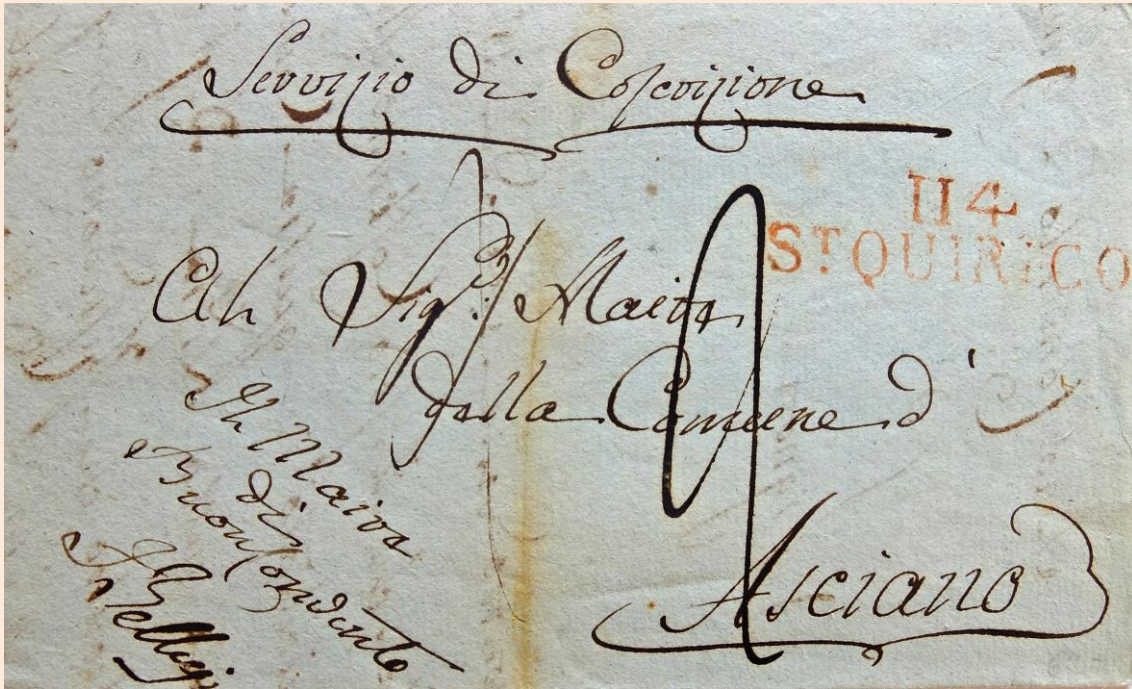 Servizio di Coscrizione
114
ST QUIRICO
Al Sigr. Maire
della Comune d'
Asciano
Il Maire
di
Buonconvento